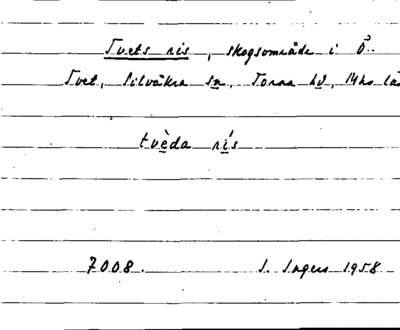 Tvets ris, skogsområde i Ö.
Tvet, Silvåkra sn, Torna hd, Mhs län
tvèda rís
7008. I. Ingers 1958